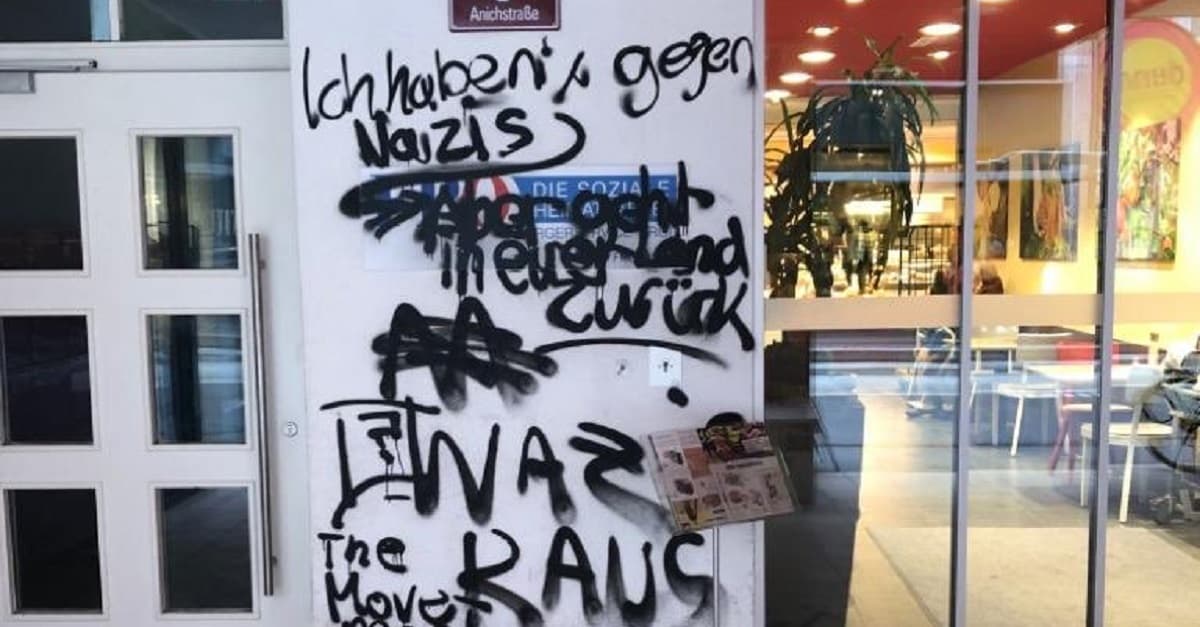 Anichstraße
Ich haben's gegen
Nazis
DIE SOZIALE
Aber geht
in euer Land
zurück
RAUS
The
Move